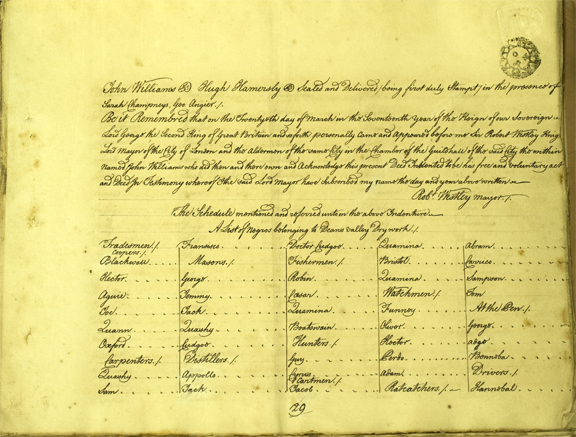 John Williams Hugh Hamersly Sealed and Delivered (being first duly Stampt) in the presence of
Sarah Champneys, Geo. Angier /.
Be it Remembered that on the Twentyeth day of March in the Seventeenth year of the Reign of our Sovereign
Lord George the Second King of Great Britain and so forth personally came and appeared before me Sir Robert Westley Kn
Lord Mayor of the City of London and the Aldermen of the same City in the Chamber of the Guildhall of the said City the within
named John Williams who did then and there own and Acknowledge this present Deed Indented to be his free and voluntary act
and Deed In Testimony whereof I the said Lord Mayor have subscribed my name the day and year above written
Robt. Westley mayor /.
The Schedule mentioned and referred unto in the above Indenture
A List of Negroes belonging to Deans Valley Drywork /.
Tradesmen /. Francisco Doctor Cudgoe Quamina Abram
Coopers /.
Blackwall Masons /. Fishermen /. Bristol
Hector George Robin Quamina Sampson
Tommy Cesar Watchmen /. Tom
Joe Jack Quamina At the Pen /.
Quashy Boatswain Oliver George
Oxford Cudgoe Hunters /. Hector
Carpenters /. Distillers /. Guy
Quashy Appollo Cyrus Adam Drivers /.
Cartmen /.
Sam Jack Jacob Ratcatchers /. Hannibal
29